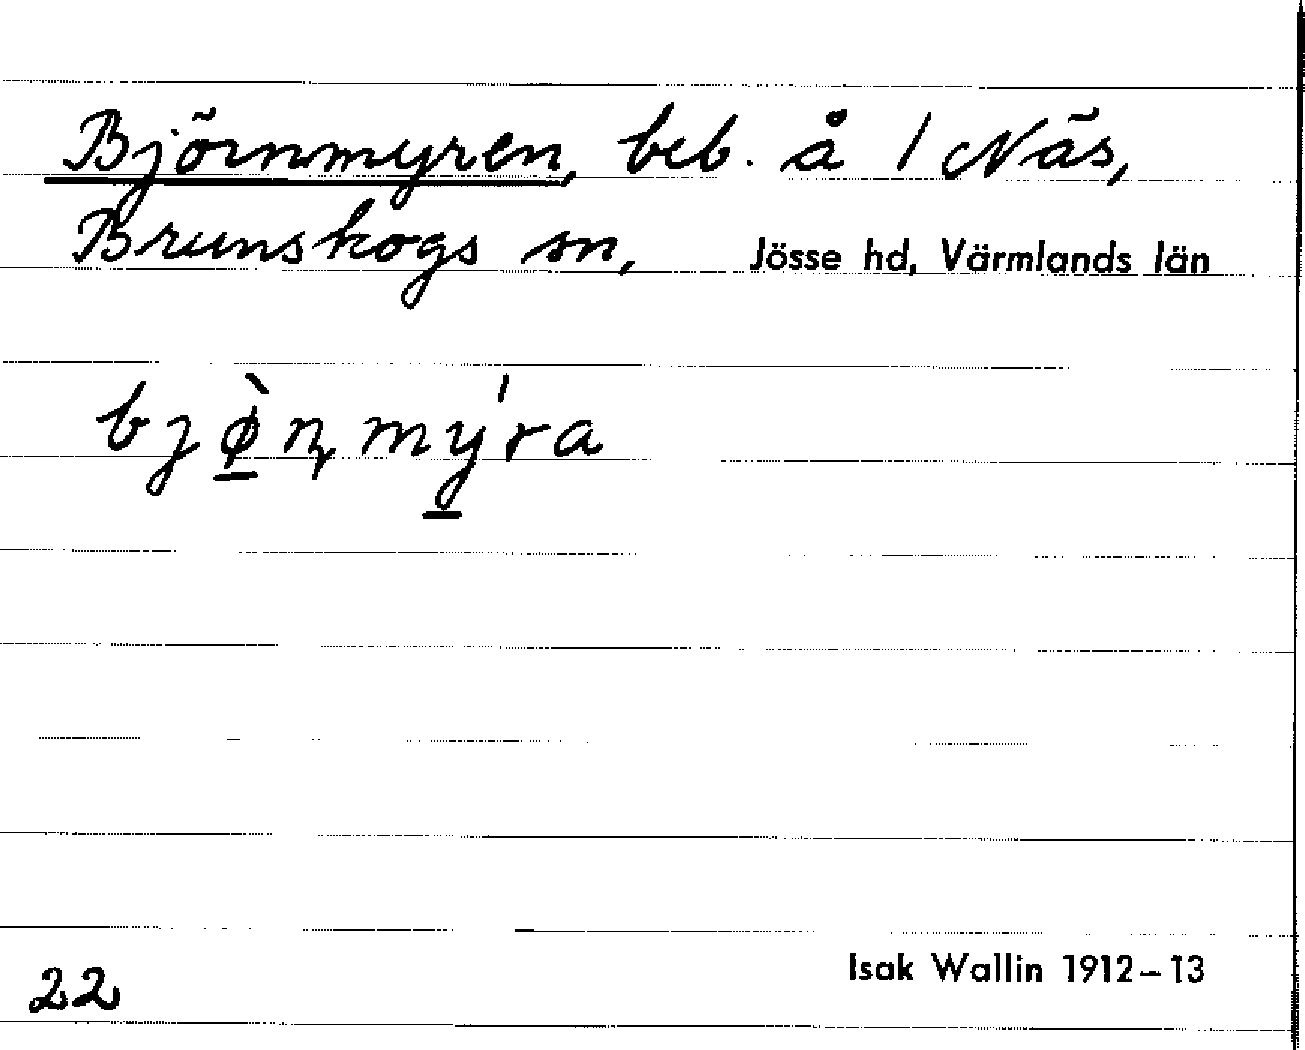 Björnmyren, beb. å 1 Näs,
Brunskogs sn, Jösse hd, Värmlands län
bjø̲̀ɳmý̲ra
22
Isak Wallin 1912–13